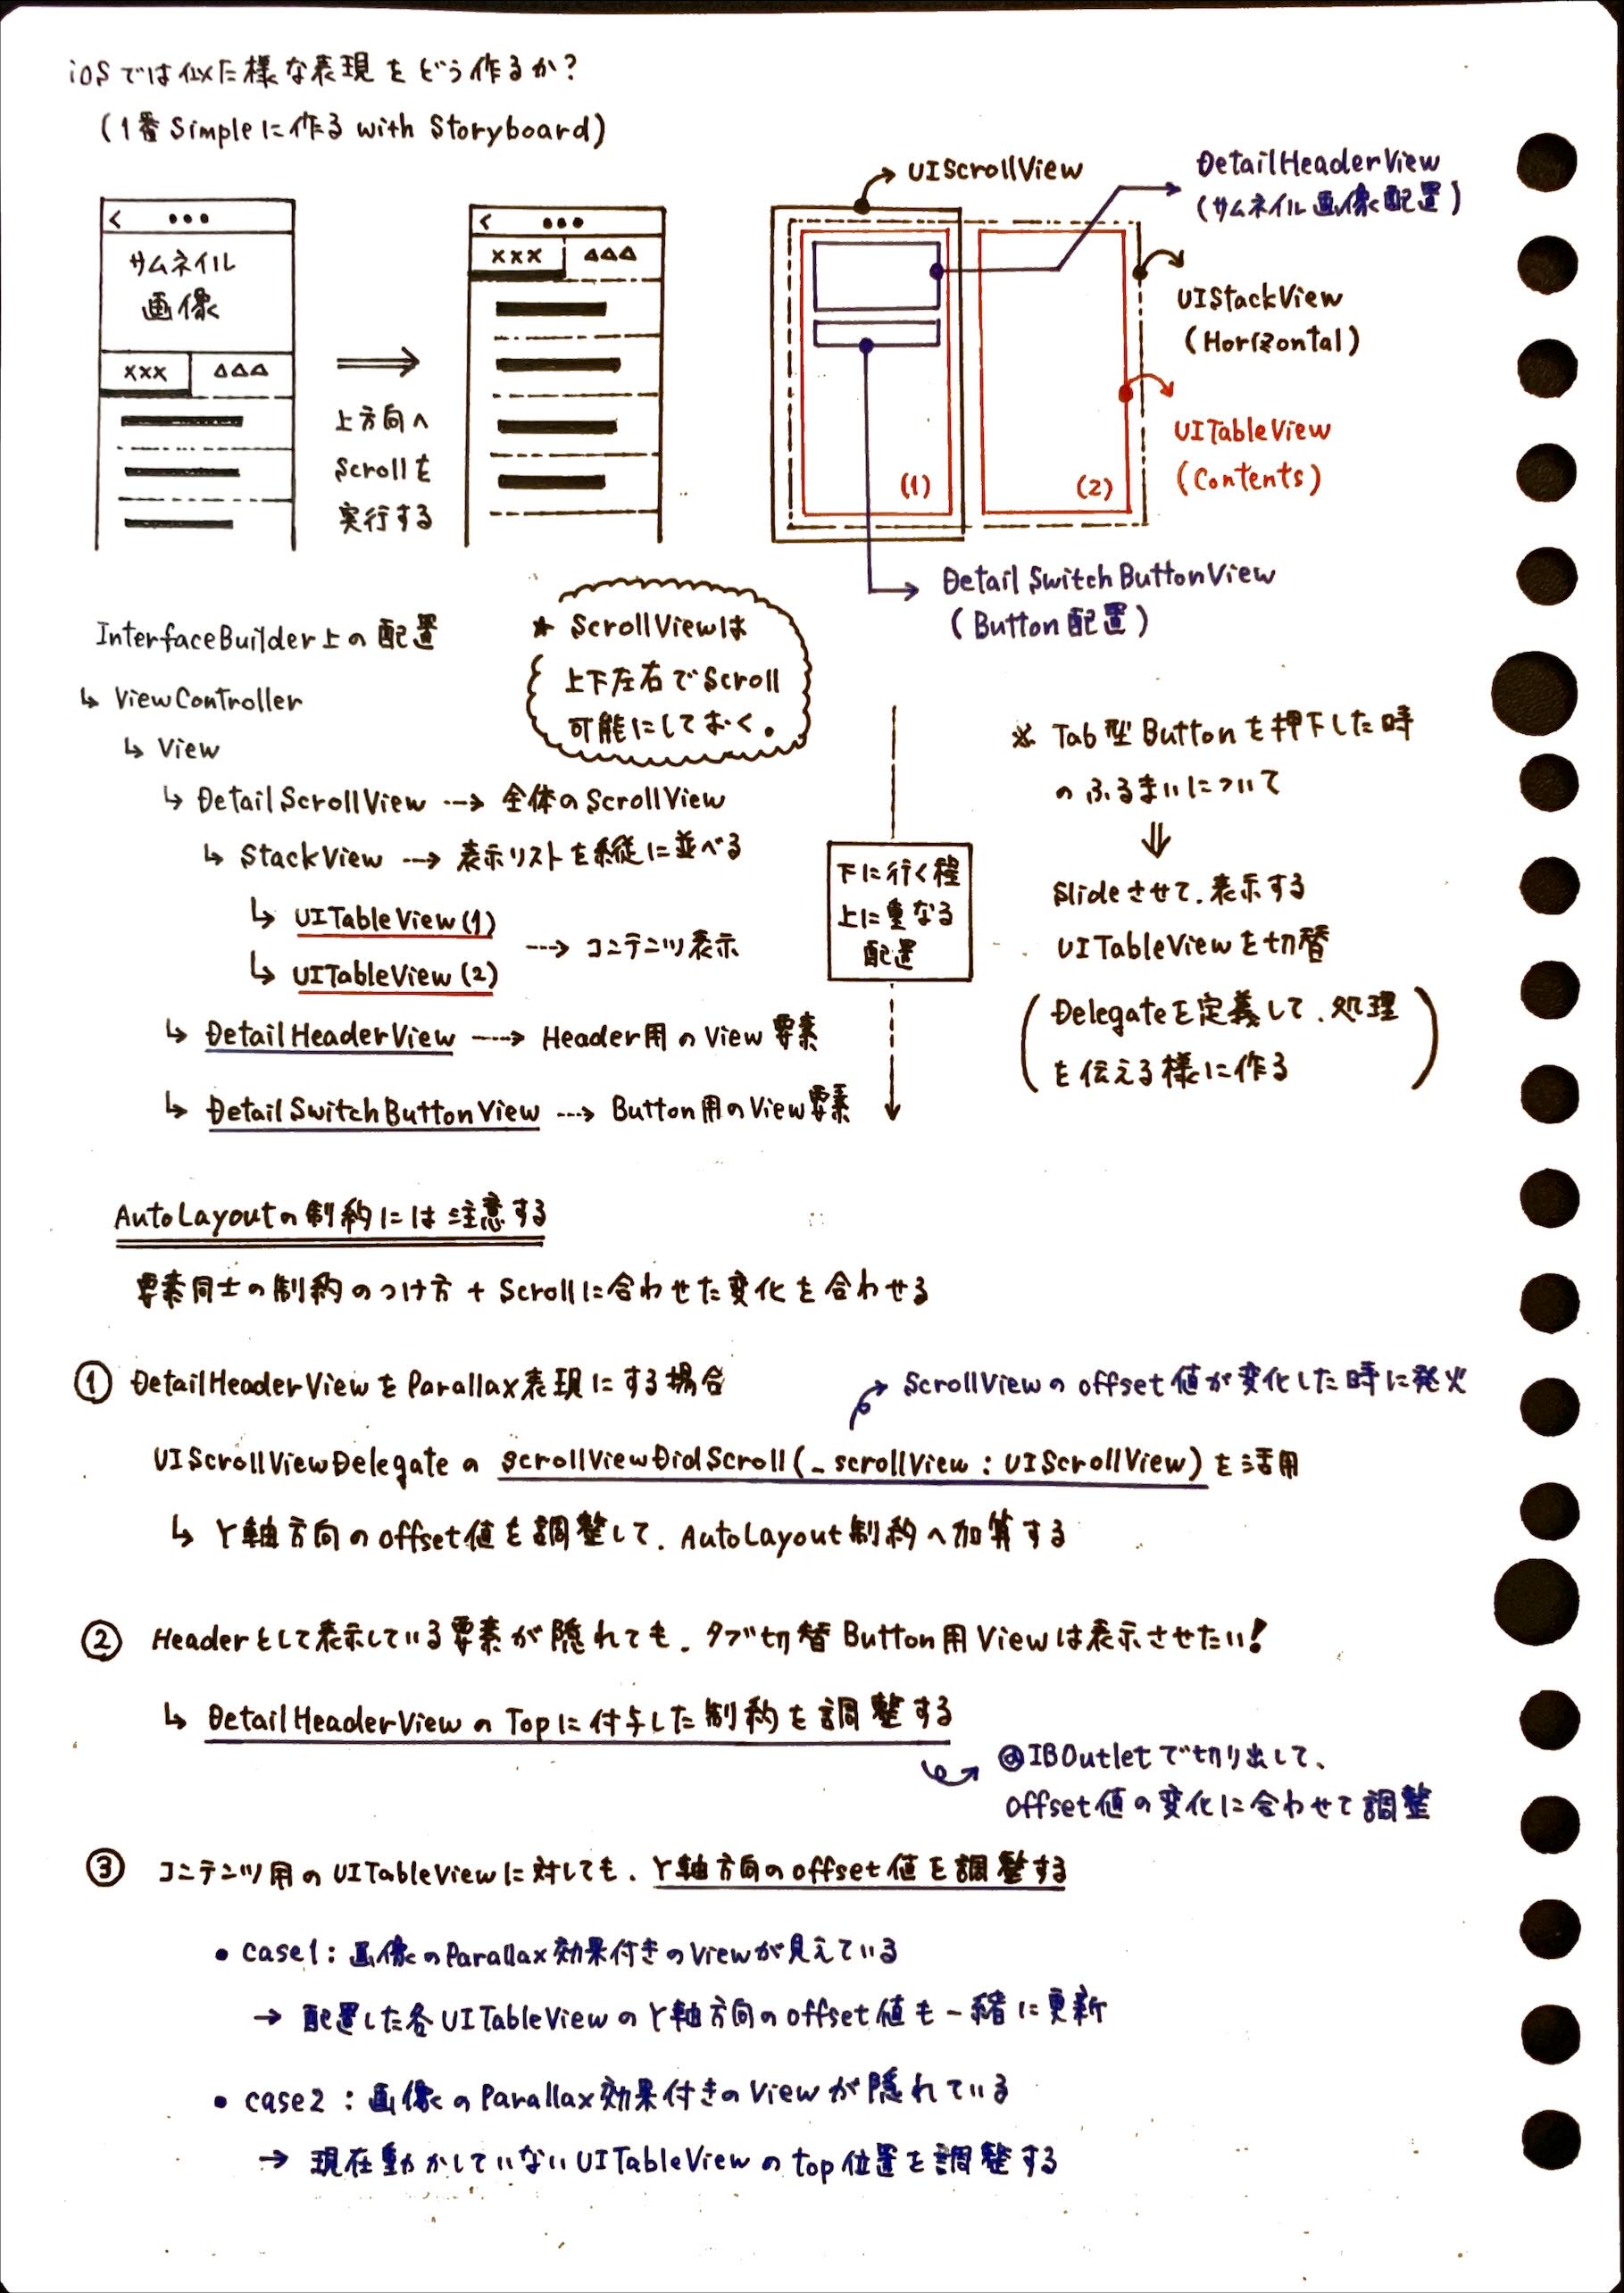 iOSでは似た様な表現をどう作るか?
(1番Simpleに作る with Storyboard)
サムネイル
画像
xxx
△△△
上方向へ
Scrollを
実行する
xxx
△△△
UIScrollView
DetailHeaderView
(サムネイル画像配置)
UIStackView
(Horizontal)
UITableView
(Contents)
(1)
(2)
DetailSwitchButtonView
(Button配置)
InterfaceBuilder上の配置
↳ ViewController
↳ View
↳ DetailScrollView --→ 全体のScrollView
↳ StackView --→ 表示リストを縦に並べる
↳ UITableView(1)
↳ UITableView(2)
---→ コンテンツ表示
↳ DetailHeaderView ----→ Header用のView要素
↳ DetailSwitchButtonView ---→ Button用のView要素
★ ScrollViewは
上下左右でScroll
可能にしておく。
下に行く程
上に重なる
配置
※ Tab型Buttonを押下した時
のふるまいについて
⇓
Slideさせて、表示する
UITableViewを切替
(Delegateを定義して、処理
を伝える様に作る)
AutoLayoutの制約には注意する
要素同士の制約のつけ方 + Scrollに合わせた変化を合わせる
① DetailHeaderViewをParallax表現にする場合
ScrollViewのoffset値が変化した時に発火
UIScrollViewDelegateの scrollViewDidScroll(_ scrollView : UIScrollView) を活用
↳ Y軸方向のoffset値を調整して、AutoLayout制約へ加算する
② Headerとして表示している要素が隠れても、タブ切替Button用Viewは表示させたい!
↳ DetailHeaderViewのTopに付与した制約を調整する
@IBOutletで切り出して、
offset値の変化に合わせて調整
③ コンテンツ用のUITableViewに対しても、Y軸方向のoffset値を調整する
• case1 : 画像のParallax効果付きのViewが見えている
→ 配置した各UITableViewのY軸方向のoffset値も一緒に更新
• case2 : 画像のParallax効果付きのViewが隠れている
→ 現在動かしていないUITableViewのtop位置を調整する